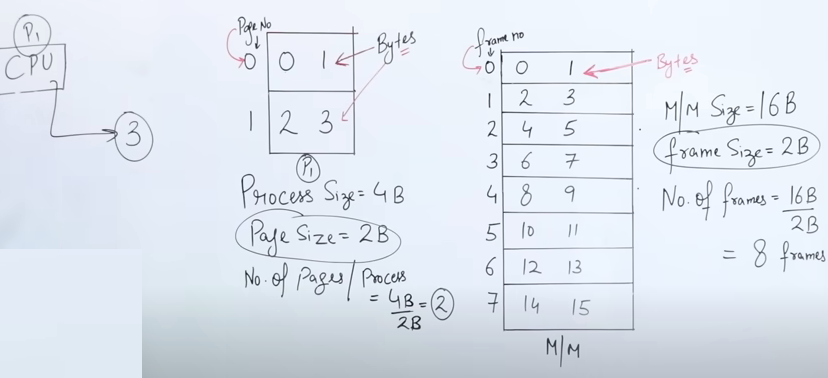 P₁
CPU
3
Page No
0 0 1
Bytes
1 2 3
P₁
Process Size = 4B
Page Size = 2B
No. of Pages / Process
= 4B/2B = 2
frame no
0 0 1
Bytes
1 2 3
2 4 5
3 6 7
4 8 9
5 10 11
6 12 13
7 14 15
M/M
M/M Size = 16B
frame Size = 2B
No. of frames = 16B/2B
= 8 frames